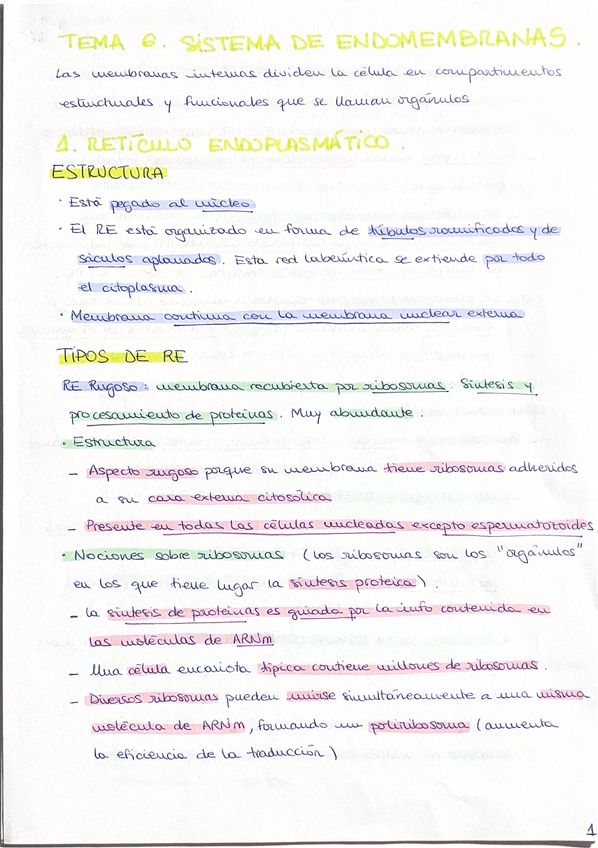 TEMA 6. SISTEMA DE ENDOMEMBRANAS.
Las membranas internas dividen la célula en compartimentos
estructurales y funcionales que se llaman orgánulos
1. RETÍCULO ENDOPLASMÁTICO.
ESTRUCTURA
· Está pegado al núcleo
· El RE está organizado en forma de túbulos ramificados y de
sáculos aplanados. Esta red laberíntica se extiende por todo
el citoplasma.
· Membrana continua con la membrana nuclear externa
TIPOS DE RE
RE Rugoso: membrana recubierta por ribosomas. Síntesis y
procesamiento de proteínas. Muy abundante.
· Estructura
- Aspecto rugoso porque su membrana tiene ribosomas adheridos
a su cara externa citosólica
- Presente en todas las células nucleadas excepto espermatozoides
· Nociones sobre ribosomas (los ribosomas son los "orgánulos"
en los que tiene lugar la síntesis proteica).
- La síntesis de proteínas es guiada por la info contenida en
las moléculas de ARNm
- Una célula eucariota típica contiene millones de ribosomas.
- Diversos ribosomas pueden unirse simultáneamente a una misma
molécula de ARNm, formando un polirribosoma (aumenta
la eficiencia de la traducción)
1